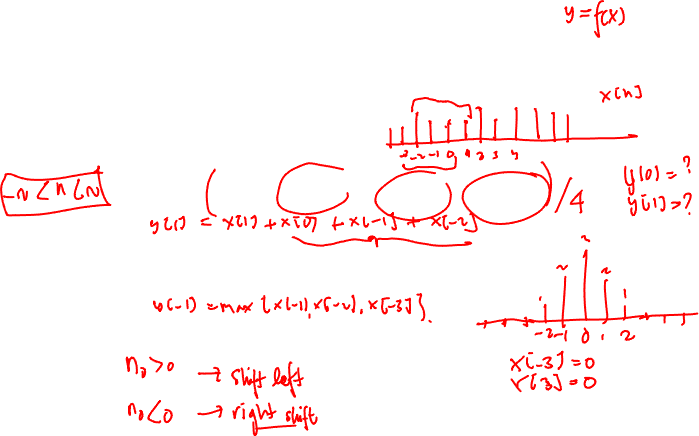 y = f(x)
x[n]
-3 -2 -1 0 1 2 3 4
-N < n < N
y[1] = x[1] + x[0] + x[-1] + x[-2]
/4
y[0] = ?
y[1] = ?
-2 -1 0 1 2
y[-1] = max {x[-1], x[-2], x[-3]}.
x[-3] = 0
x[3] = 0
n₀ > 0 → shift left
n₀ < 0 → right shift